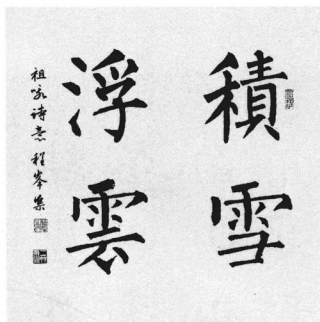 積雪
浮雲
祖咏诗意 程峰集